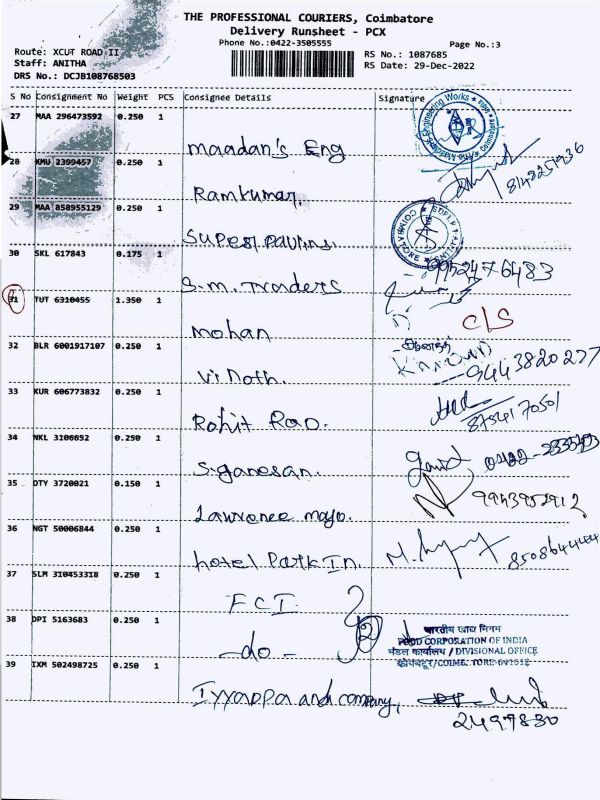 THE PROFESSIONAL COURIERS, Coimbatore
Delivery Runsheet - PCX
Phone No.:0422-3505555
Page No.:3
Route: XCUT ROAD II
Staff: ANITHA
DRS No.: DCJB108768503
RS No.: 1087685
RS Date: 29-Dec-2022
S No Consignment No Weight PCS Consignee Details Signature
27 MAA 296473592 0.250 1
maadan's Eng
Engineering Works
28 KMU 2399457 0.250 1
Ramkumar.
29 MAA 858955129 0.250 1
30 SKL 617843 0.175 1
S.M. Traders
9952476483
31 TUT 6310455 1.350 1
mohan
C/S
32 BLR 6001917107 0.250 1
Vinoth.
33 KUR 606773832 0.250 1
Rohit Rao.
8754170501
34 NKL 3106652 0.250 1
S.ganesan.
35 DTY 3720021 0.150 1
Lawrence mayo.
36 NGT 50006844 0.250 1
hotel Park In.
37 SLM 310453318 0.250 1
FCI
38 DPI 5163683 0.250 1
-do-
2
भारतीय खाद्य निगम
FOOD CORPORATION OF INDIA
मंडल कार्यालय / DIVISIONAL OFFICE
39 IXM 502498725 0.250 1
Iyyappa and company,
2497830